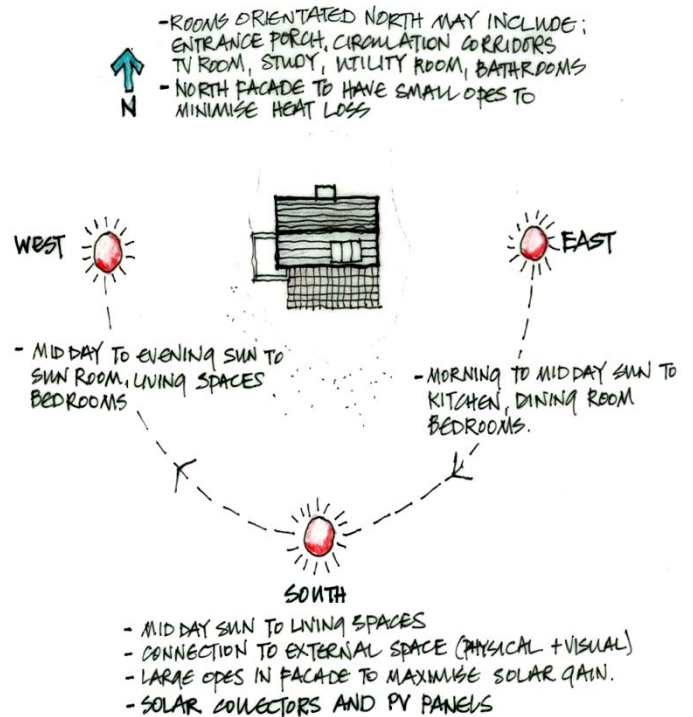 -ROOMS ORIENTATED NORTH MAY INCLUDE;
ENTRANCE PORCH, CIRCULATION CORRIDORS
TV ROOM, STUDY, UTILITY ROOM, BATHROOMS
- NORTH FACADE TO HAVE SMALL OPES TO
MINIMISE HEAT LOSS
N
WEST
EAST
- MID DAY TO EVENING SUN TO
SUN ROOM, LIVING SPACES
BEDROOMS
-MORNING TO MID DAY SUN TO
KITCHEN, DINING ROOM
BEDROOMS.
SOUTH
- MID DAY SUN TO LIVING SPACES
- CONNECTION TO EXTERNAL SPACE (PHYSICAL + VISUAL)
- LARGE OPES IN FACADE TO MAXIMISE SOLAR GAIN.
- SOLAR COLLECTORS AND PV PANELS